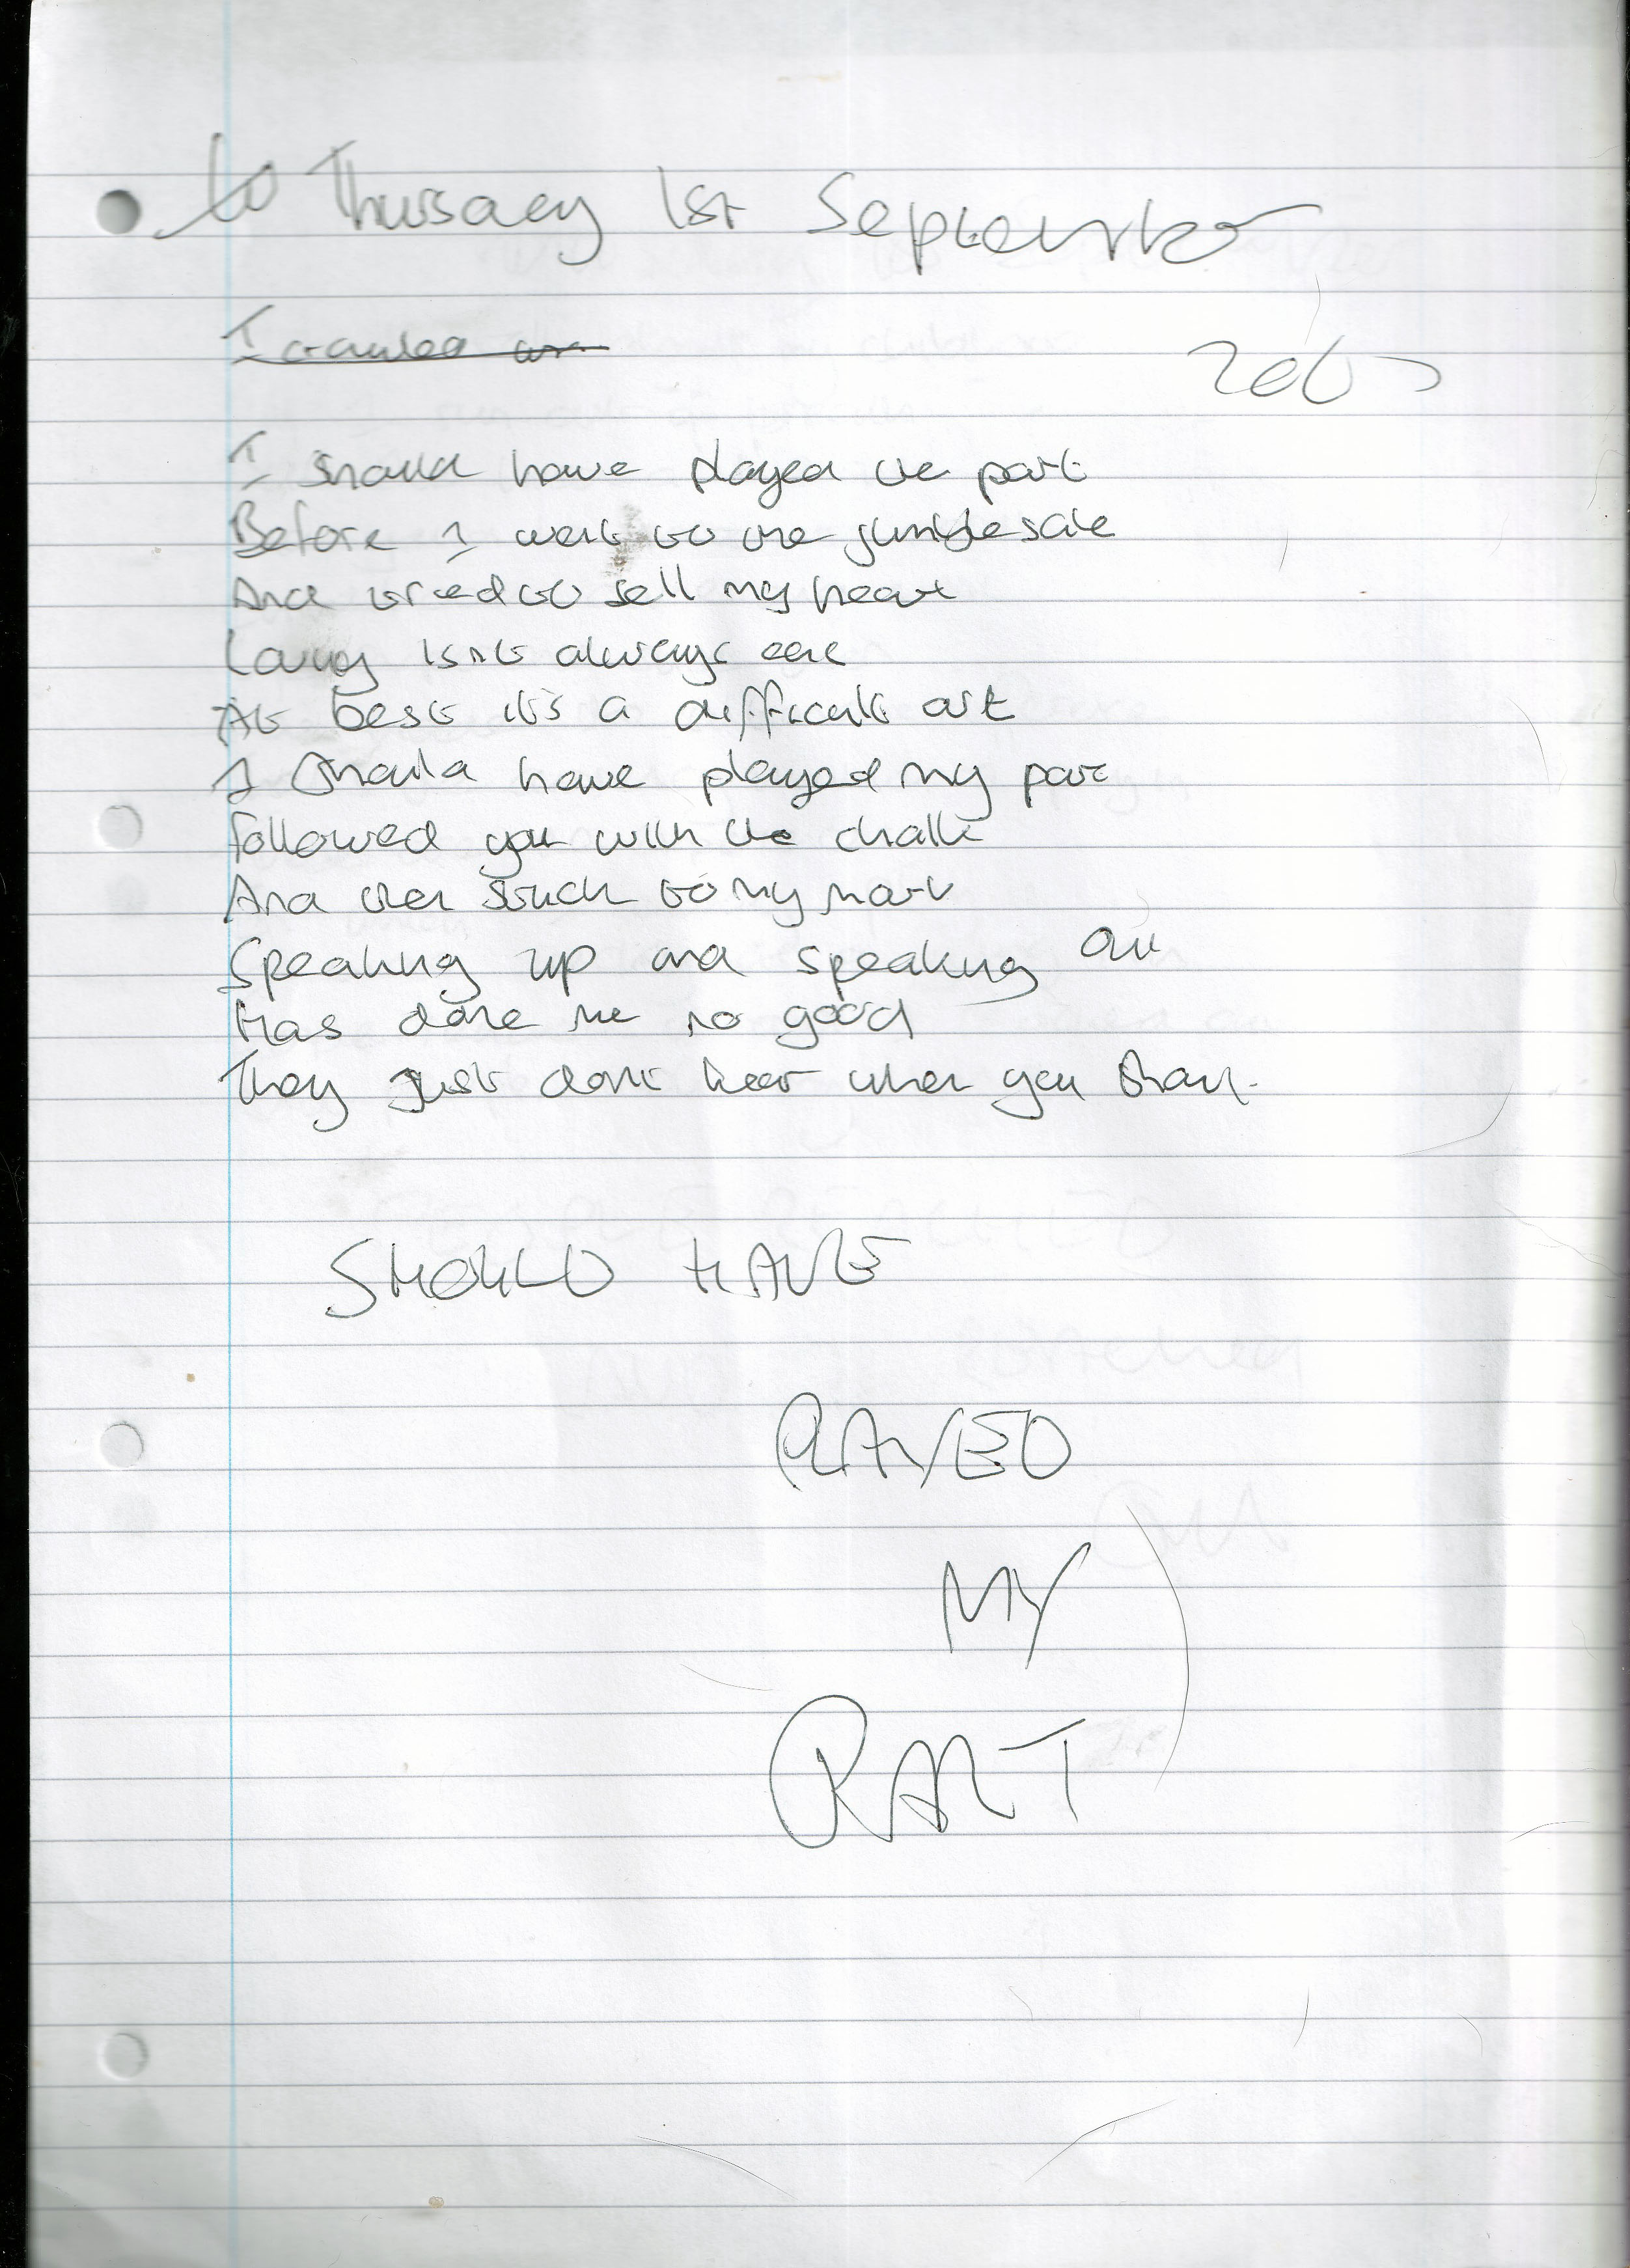 Thursday 1st September
2005
I should have played the part
Before I went to the jumble sale
And tried to sell my heart
Loving isn't always
At best it's a difficult art
I should have played my part
followed you with the chalk
And then stuck to my mark
Speaking up and speaking out
Has done me no good
They just don't hear when you shout.
SHOULD HAVE
PLAYED
MY
PART